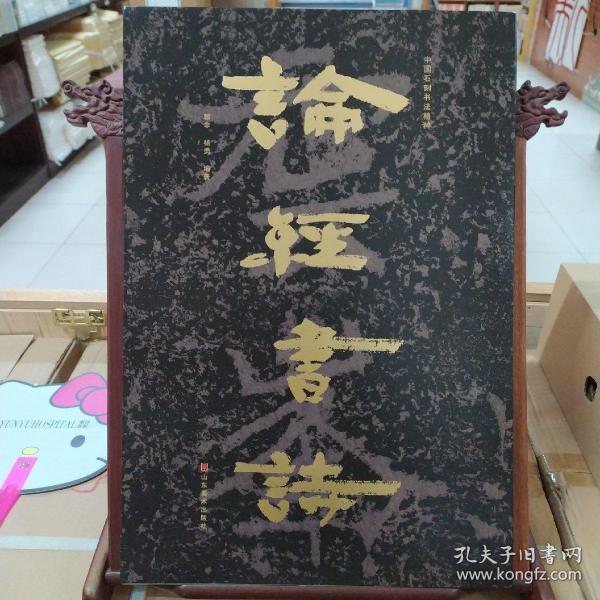 中国石刻书法精粹
論經書詩
杨勇 编著
山东美术出版社
YUNYUHOSPITAL
孔夫子旧书网
www.kongfz.com